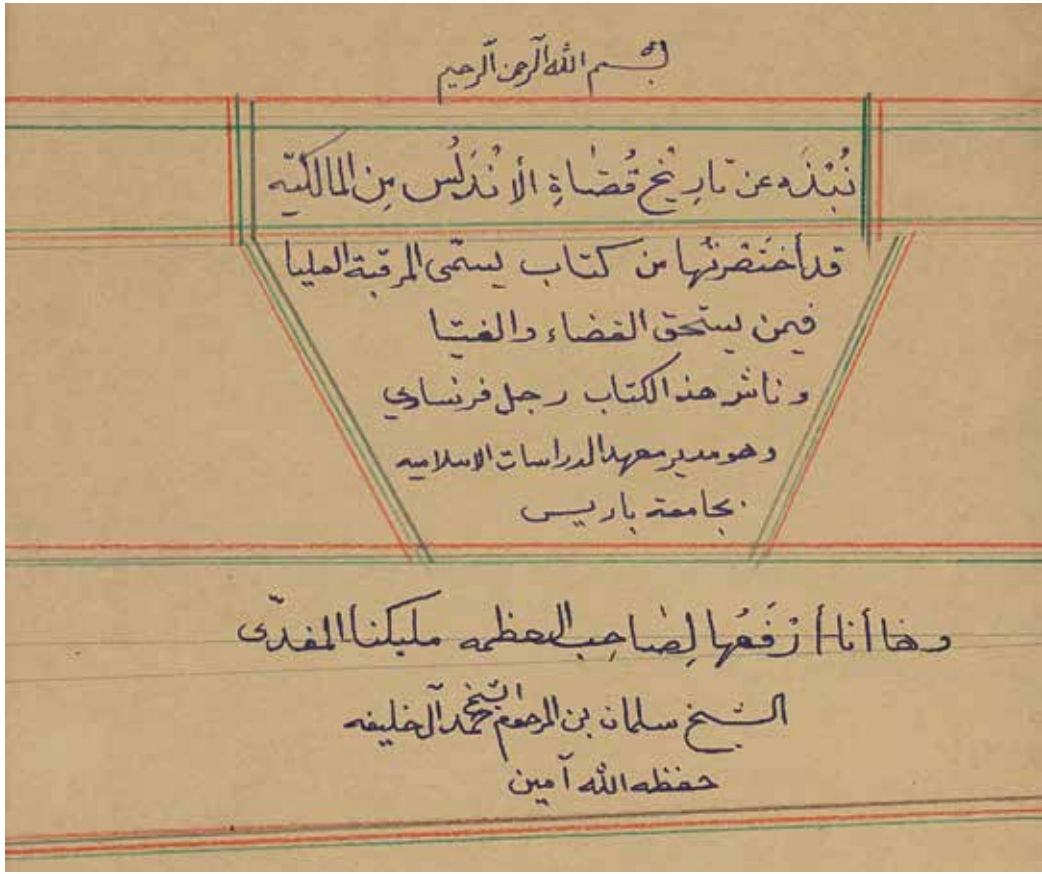 بسم الله الرحمن الرحيم
نُبْذَه عن تارِيْخ قُضاةِ الأنْدَلُس مِن المالكيّه
قد أختَصْرتُها من كتاب يسمّى المرقبة العليا
فيمن يستحق القضاء والفتيا
وناشر هذا الكتاب رجل فرنساوي
وهو مدير معهد الدراسات الاسلاميه
بجامعة باريس
وها أنا أرْفَعُها لِصاحِب العظمه مليكنا المفدّى
الشيخ سلمان بن المرحوم الشيخ حمد آل خليفه
حفظه الله آمين